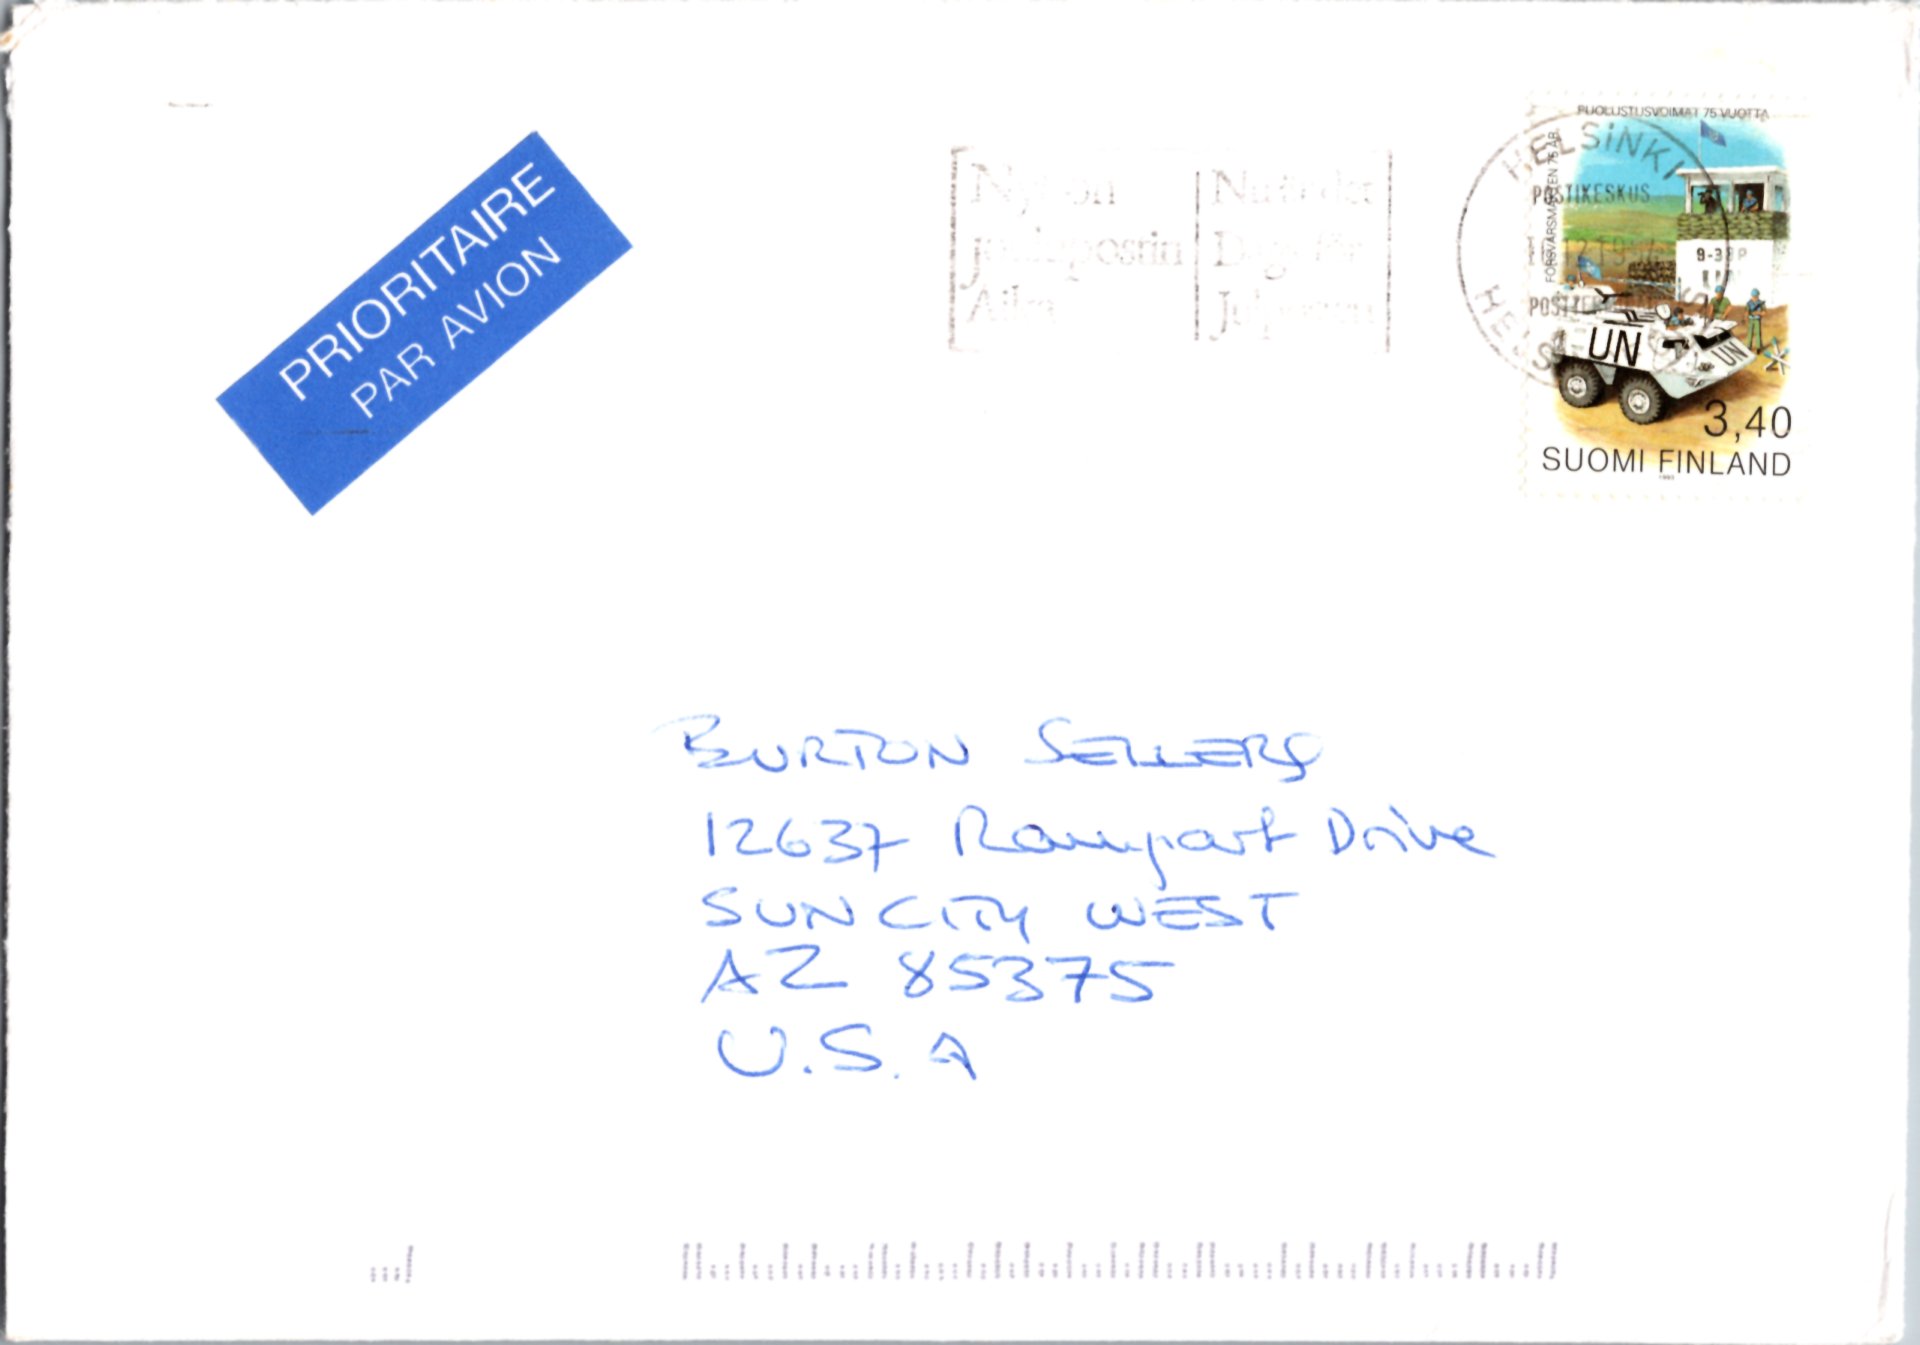 PRIORITAIRE
PAR AVION
Nyt on
joulupostin
Aika
Nu är det
Dags för
Julposten
HELSINKI
POSTIKESKUS
HELSI
PUOLUSTUSVOIMAT 75 VUOTTA
FÖRSVARSMAKTEN 75 ÅR
9-38P
UN
UN
3,40
SUOMI FINLAND
1993
BURTON SELLERS
12637 Rampart Drive
SUN CITY WEST
AZ 85375
U.S.A